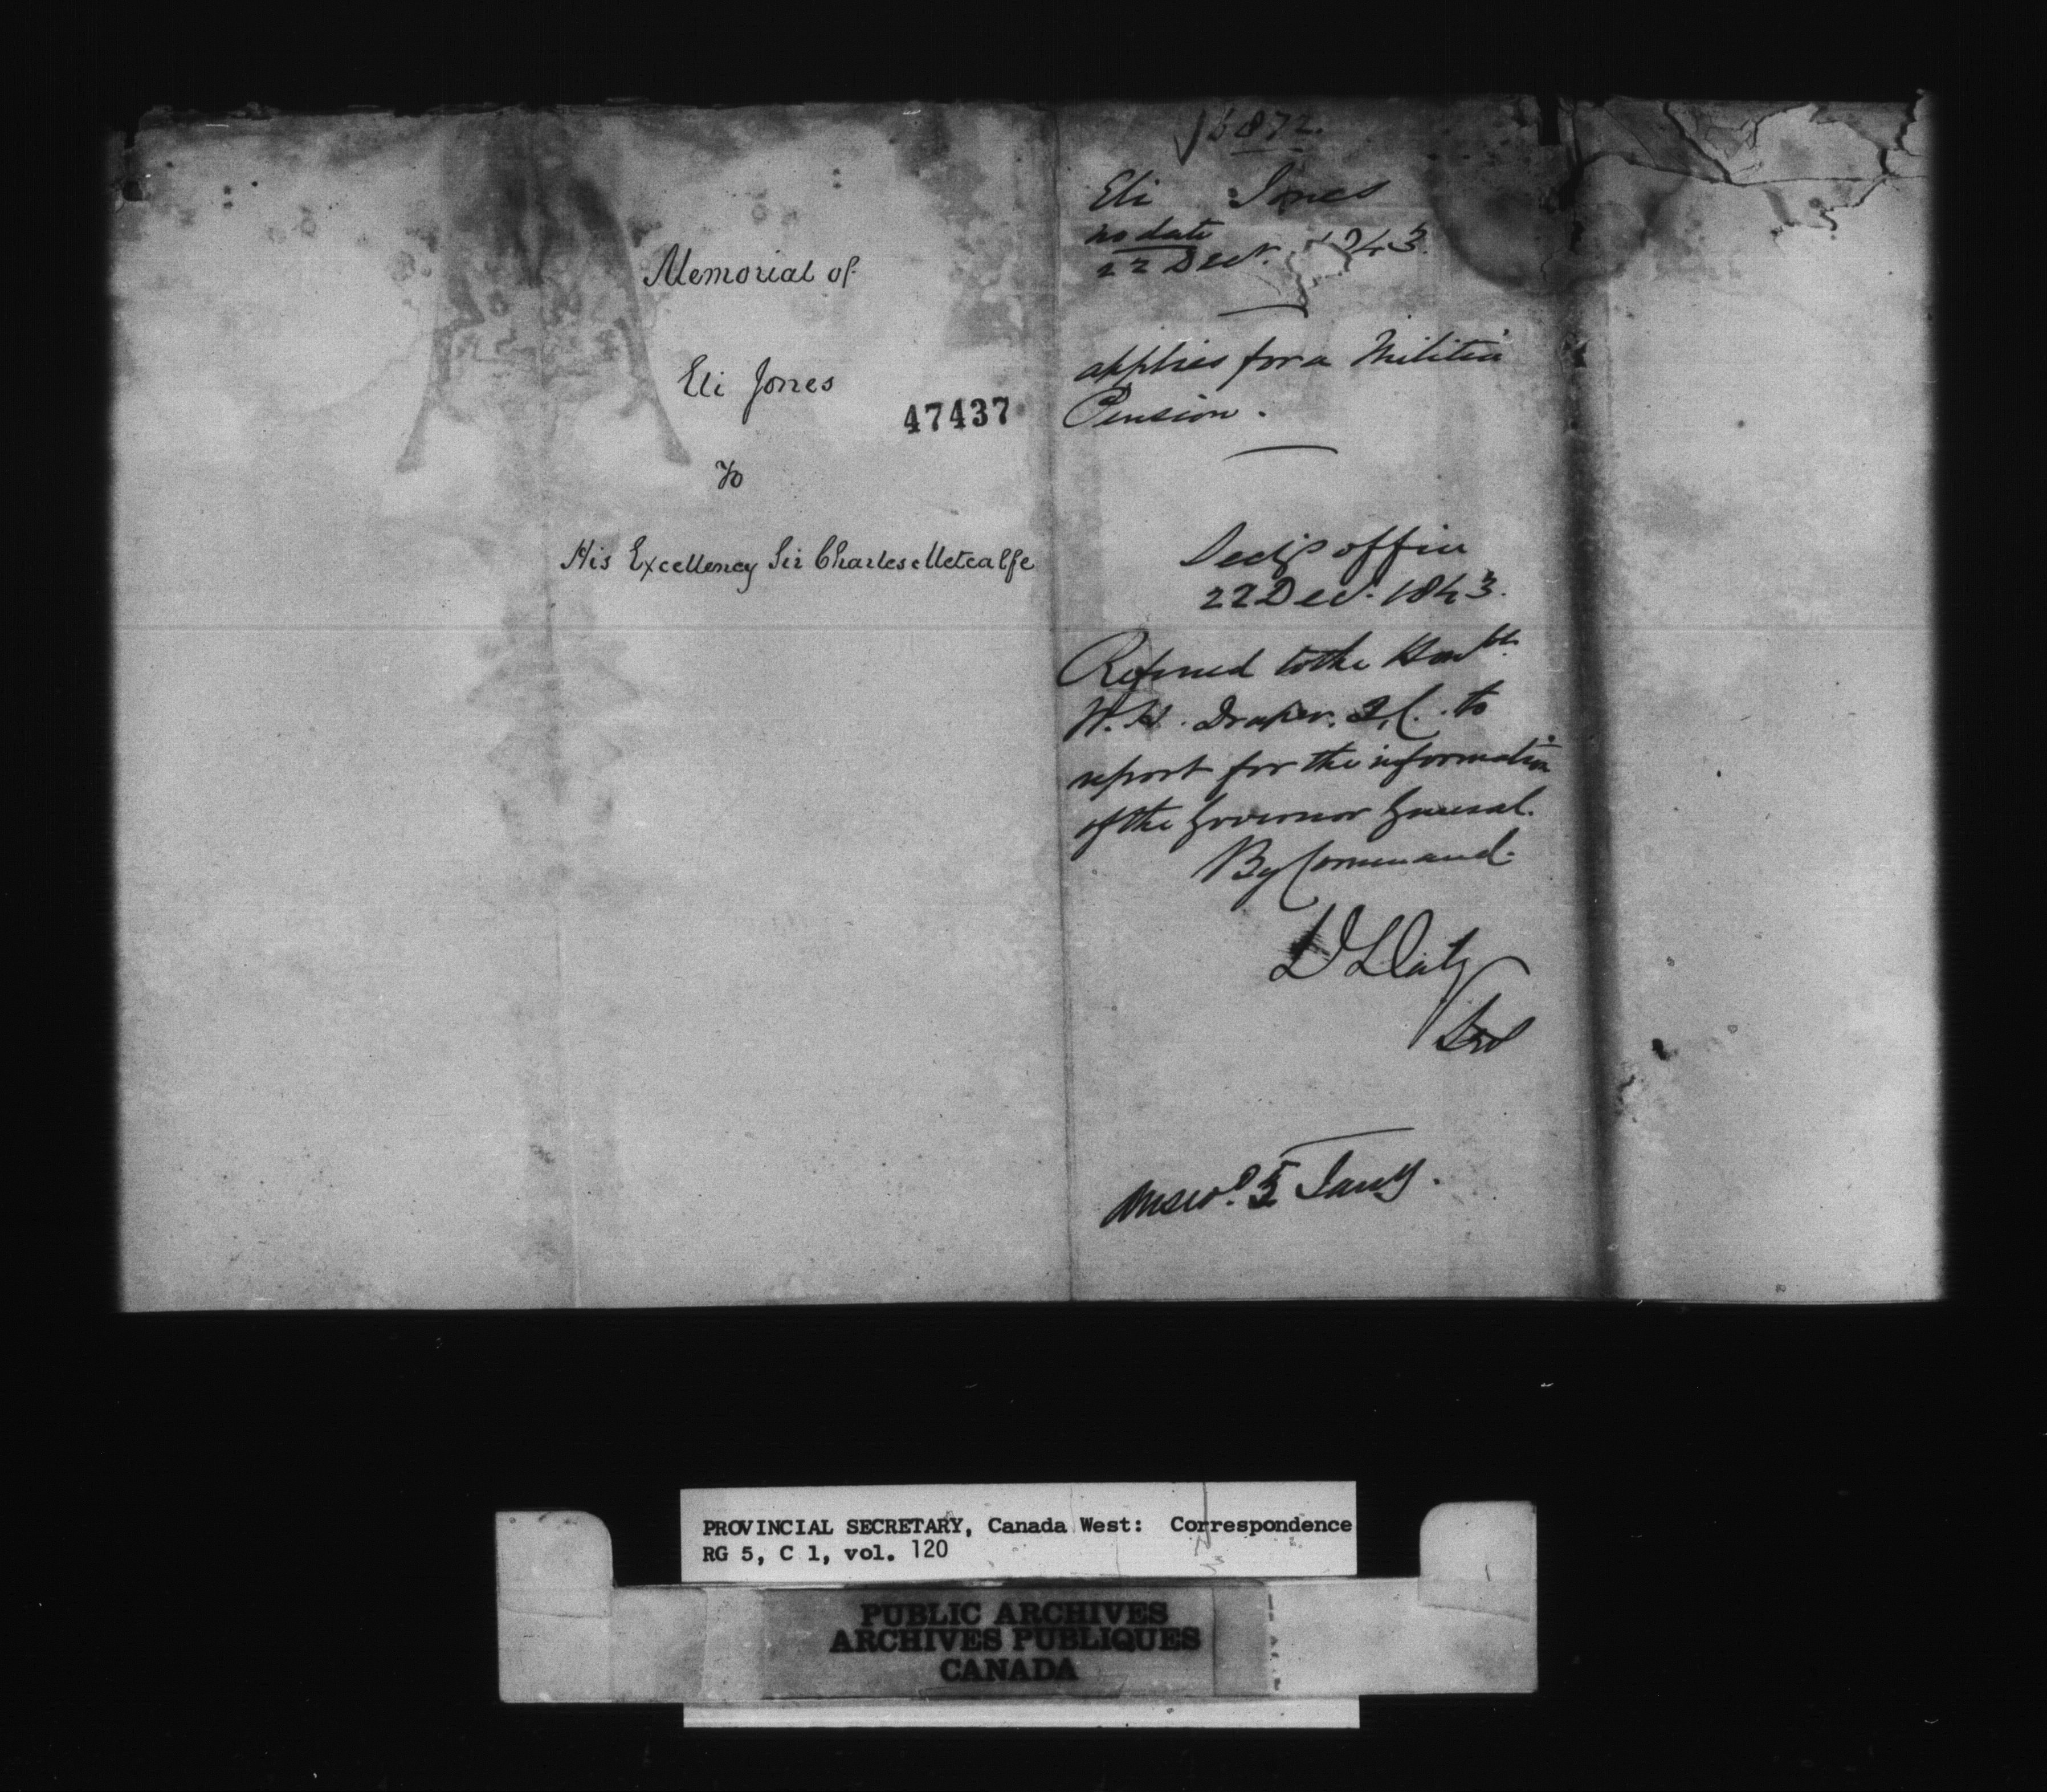 Memorial of
Eli Jones
47437
To
His Excellency Sir Charles Metcalfe
6872.
Eli Jones
no date
22 Decr. 1843.
applies for a Militia
Pension.
Secy's office
22 Decr. 1843.
Referred to the Honble
W. H. Draper. Q.C. to
report for the information
of the Governor General.
By Command.
D Daly
Secy
Answd. 5 Jany.
PROVINCIAL SECRETARY, Canada West: Correspondence
RG 5, C 1, vol. 120
PUBLIC ARCHIVES
ARCHIVES PUBLIQUES
CANADA